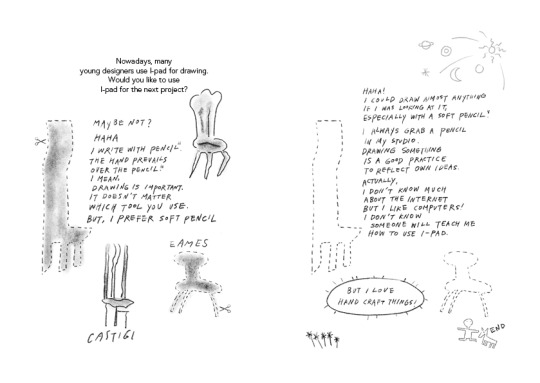 Nowadays, many
young designers use I-pad for drawing.
Would you like to use
I-pad for the next project?
MAYBE NOT?
HAHA
I WRITE WITH PENCIL"
THE HAND PREVAILS
OVER THE PENCIL."
I MEAN,
DRAWING IS IMPORTANT.
IT DOESN'T MATTER
WHICH TOOL YOU USE.
BUT, I PREFER SOFT PENCIL
EAMES
CASTIGI
HAHA!
I COULD DRAW ALMOST ANYTHING
IF I WAS LOOKING AT IT,
ESPECIALLY WITH A SOFT PENCIL"
I ALWAYS GRAB A PENCIL
IN MY STUDIO.
DRAWING SOMETHING
IS A GOOD PRACTICE
TO REFLECT OWN IDEAS.
ACTUALLY,
I DON'T KNOW MUCH
ABOUT THE INTERNET
BUT I LIKE COMPUTERS!
I DON'T KNOW
SOMEONE WILL TEACH ME
HOW TO USE I-PAD.
BUT I LOVE
HAND CRAFT THINGS!
END